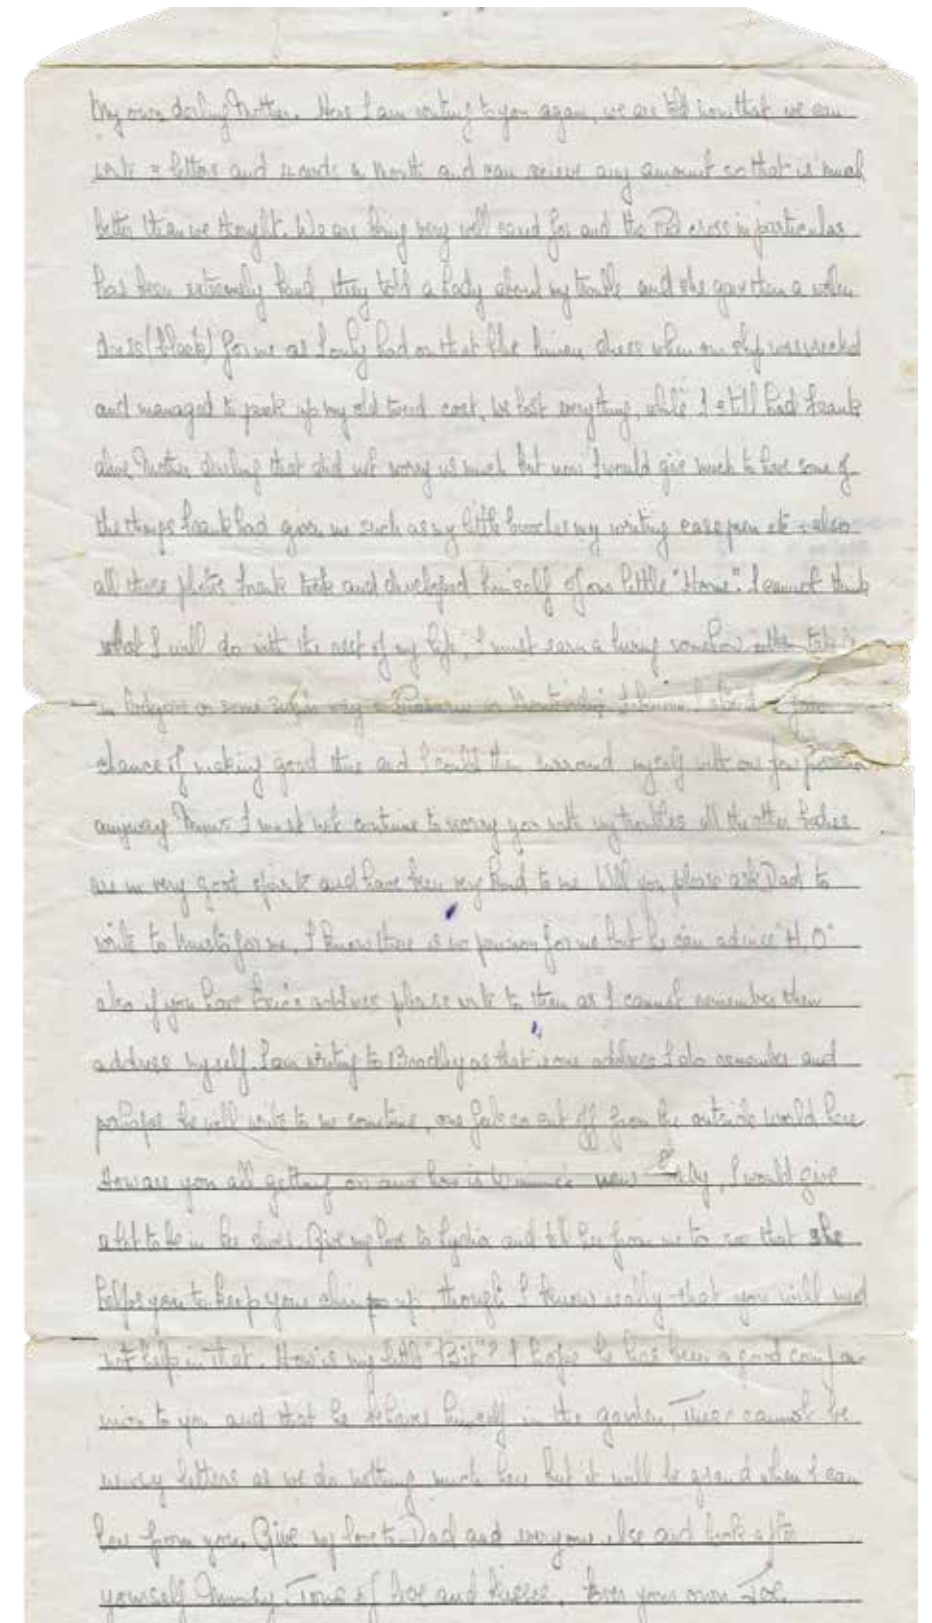 My own darling Mother. Here I am writing to you again, we are told now that we can
write 2 letters and 4 cards a month and can recieve any amount so that is much
better than we thought. We are being very well cared for and the Red cross in particular
has been extremely kind, they told a lady about my trouble and she gave them a
dress (black) for me as I only had on that dress when our ship was wrecked
and managed to pick up my old tweed coat, we lost everything, while I still had Frank
alive Mother darling that did not worry us much but now I would give much to have some of
the things Frank had given me such as my little brooches my writing case pen etc also
all those photos Frank took and developed himself of our little "Home". I cannot think
what I will do with the rest of my life, I must earn a living somehow
in lodgers or some such way I know I stand a
chance of making good there and I could then surround myself with
anyway Mums I must not continue to worry you with my troubles all the other ladies
are in very good spirits and have been very kind to me Will you please ask Dad to
write to for me, I know there is no pension for me but he can advise "H.O"
also if you have address please write to them as I cannot remember their
address myself. I am writing to Bradley as that is one address I do remember and
perhaps he will write to me sometime, one feels so cut off from the outside world here
How are you all getting on and how is Winnie's new, I would give
a lot to be in her shoes. Give my love to Lydia and tell her from me to see that she
helps you to keep your chin up, though I know really that you will need
not help in that. How is my little "Bit"? I hope he has been a good compan
nion to you and that he behaves himself in the garden, These cannot be
newsy letters as we do nothing much here but it will be grand when I can
hear from you. Give my love to Dad and everyone else and look after
yourself Mumsy Tons of love and kisses. Ever your own